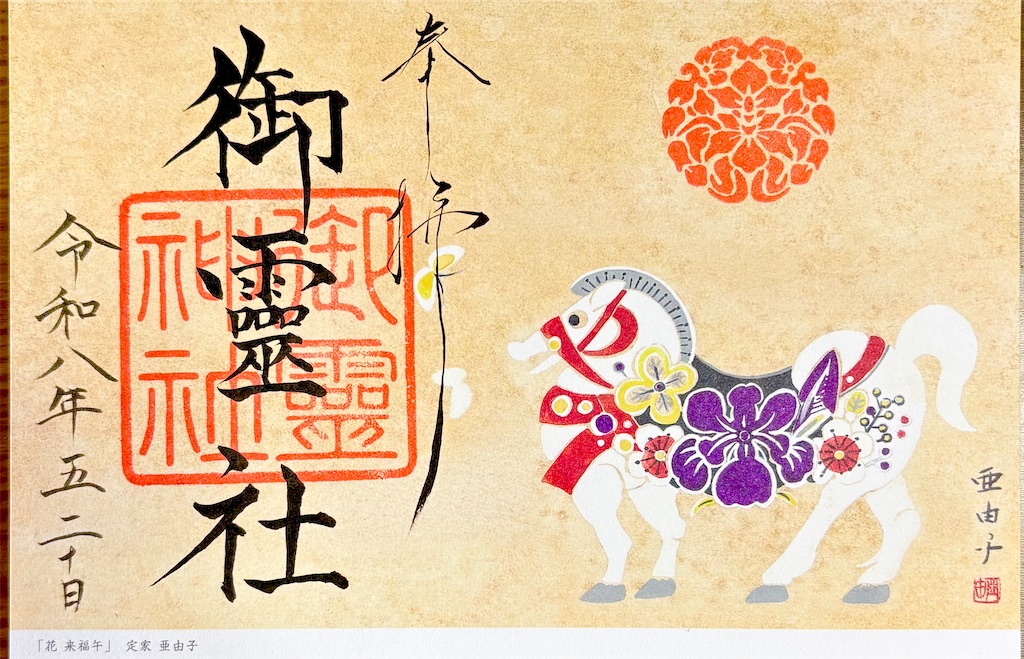 奉拝
御靈社
令和八年五二十日
亜由子
「花 来福午」 定家 亜由子